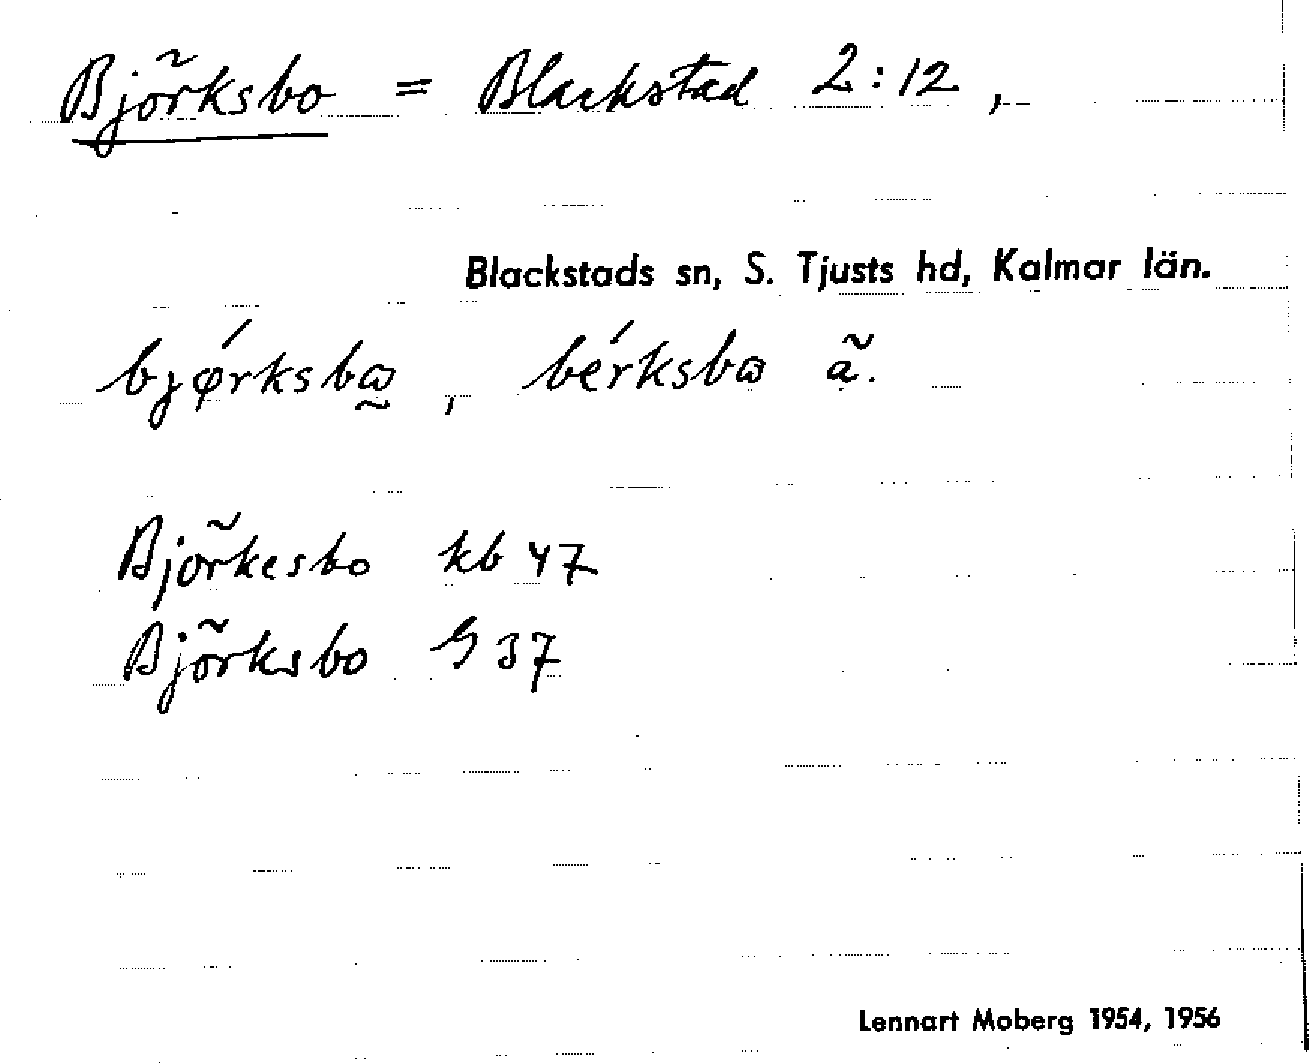 Björksbo = Blackstad 2:12,
Blackstads sn, S. Tjusts hd, Kalmar län.
bjǿrksbɷ̰, bérksbɷ ã.
Björkesbo kb 47
Björksbo G 37
Lennart Moberg 1954, 1956